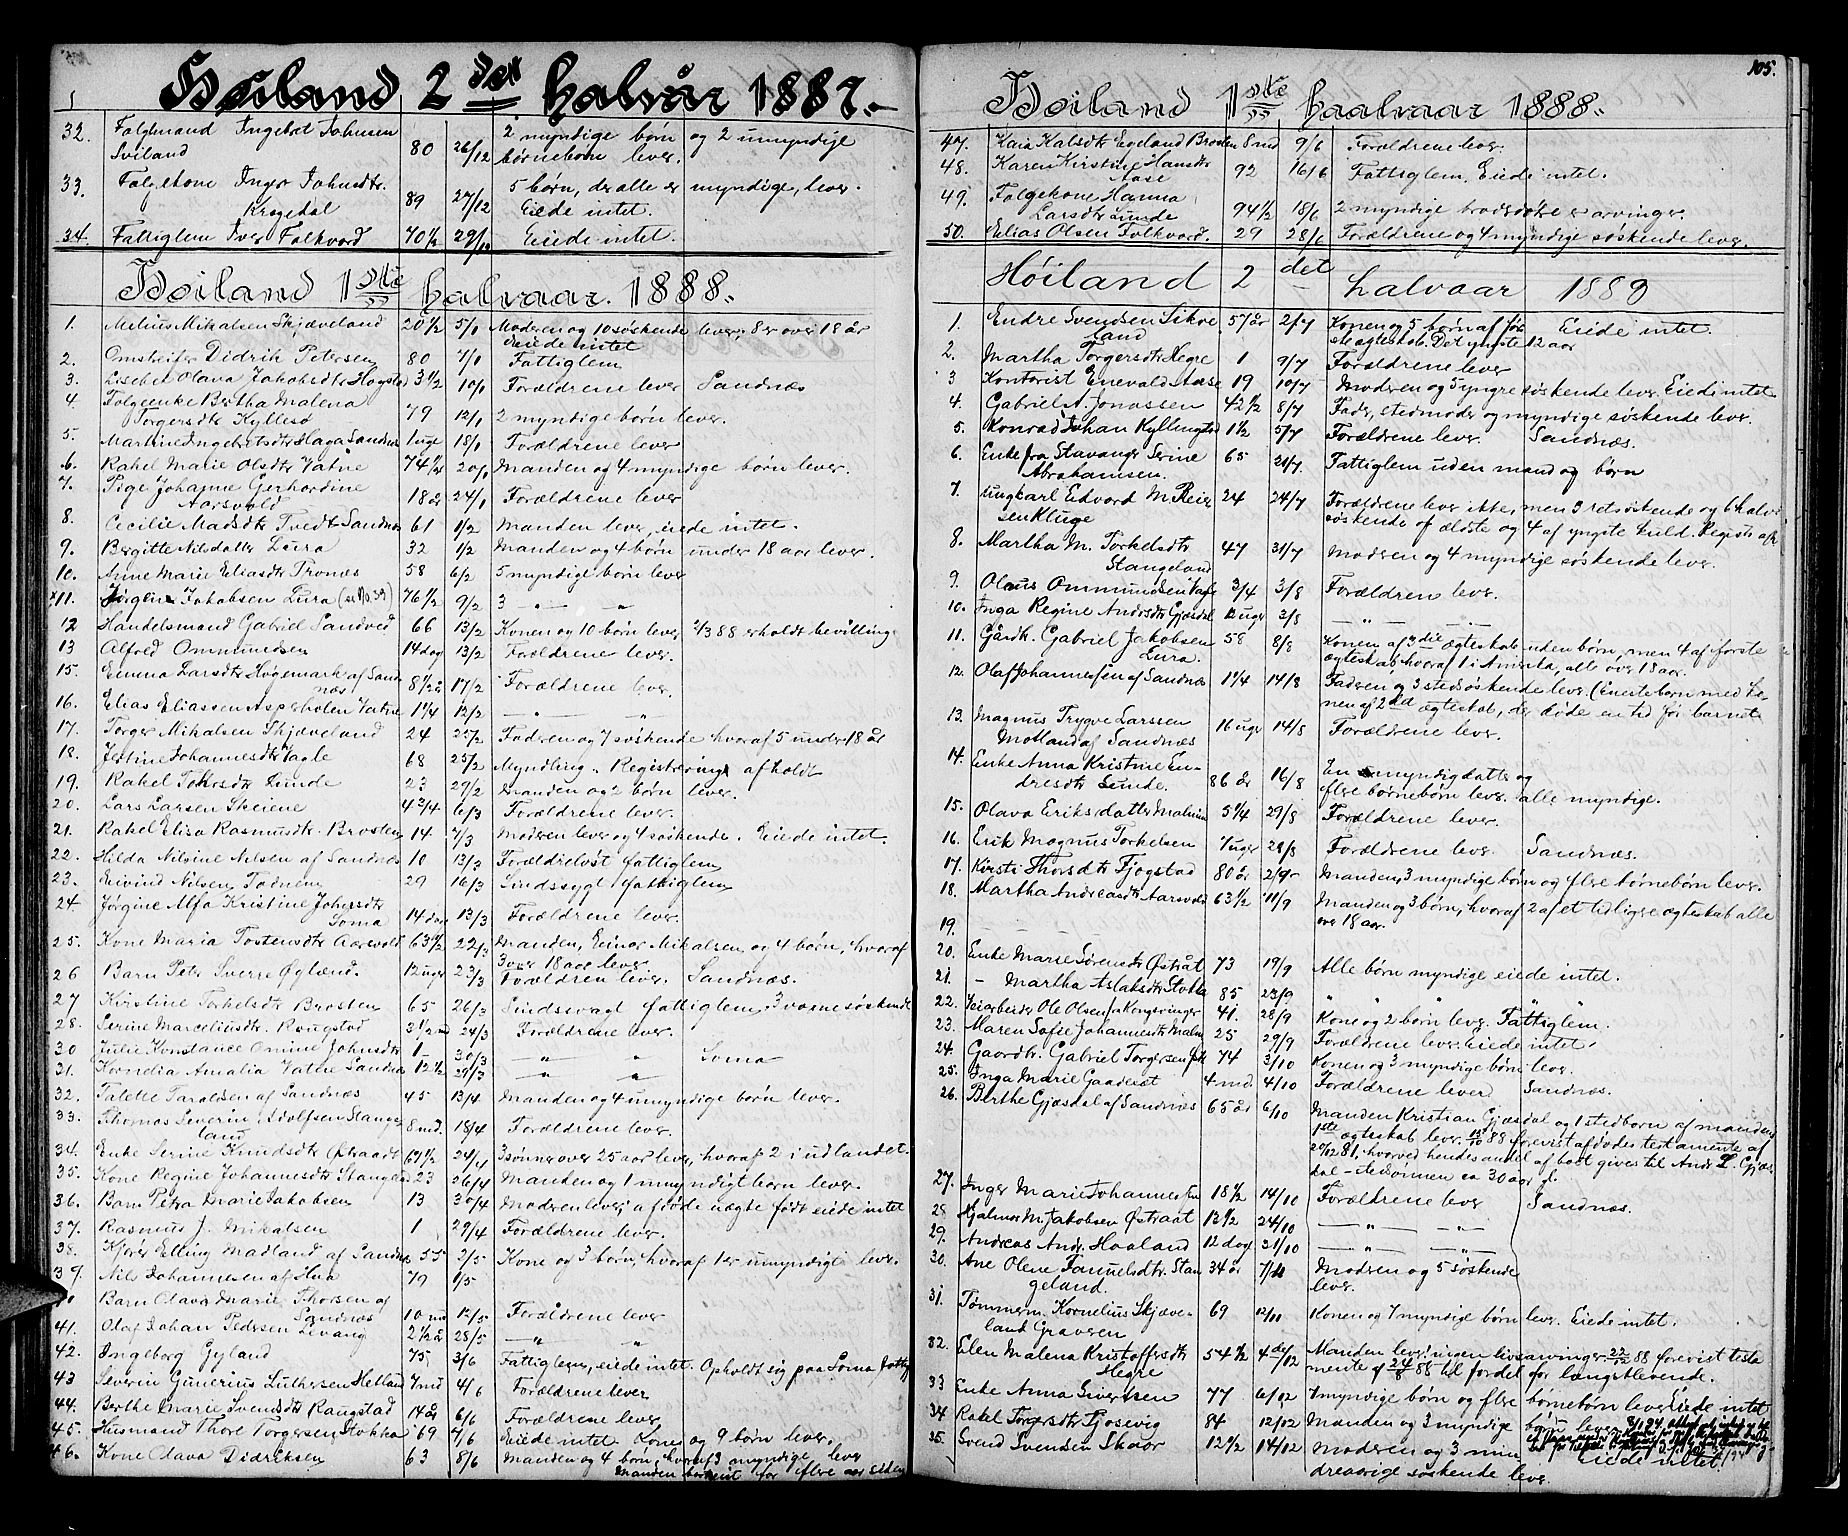 Høiland 2det halvår 1887.
32. Følgemand Ingebret Johnsen 80 26/12 2 myndige børn og 2 umyndige
Sviland børnebørn lever.
33. Følgekone Inger Johnsdtr. 89 27/12 5 børn, der alle er myndige, lever.
Krogedal Eiede intet.
34. Fattiglem Iver Folkvord 70 1/2 29/12 Eiede intet.
Høiland 1ste halvaar. 1888.
1. Melius Mikalsen Skjæveland 20 1/2 5/1 Moderen og 10 søskende lever, 8 er over 18 år
Eiede intet
2. Omstreifer Didrik Petersen 80 7/1 Fattiglem
3. Lisebet Olava Jakobsdtr Hogstad 3 1/2 10/1 Forældrene lever Sandnæs
4. Følgeenke Bertha Malena
Torgersdtr Kyllesø 79 12/1 2 myndige børn lever.
5. Martine Ingebretsdtr Haga Sandnæs 1 uge 18/1 Forældrene lever
6. Rakel Marie Olsdtr Vatne 74 1/2 20/1 Manden og 4 myndige børn lever.
7. Pige Johanne Gerhardine
Aarsvold 18 år 24/1 Forældrene lever
8. Cecilie Madsdtr Tvedt Sandnæs 61 1/2 Manden lever, eiede intet.
9. Bergitte Nilsdatter Lura 32 1/2 Manden og 4 børn under 18 aar lever.
10. Anne Marie Eliasdtr Tronæs 58 6/2 5 myndige børn lever
11. Jørgine Jakobsen Lura (se No. 39) 76 1/2 9/2 3 — „ — „
12 Handelsmand Gabriel Sandved 66 13/2 Konen og 10 børn lever 2/3 88 erholdt bevilling
13 Alfred Ommundsen 14 dag 13/2 Forældrene lever.
15. Emma Larsdtr Høgemark af Sand-
næs 8 1/2 å 17/2 Forældrene lever.
16. Elias Eliassen Asperholen Vatne 1 1/4 12/2 — „ — „
17. Torger Mikalsen Skjæveland 24 25/2 Faderen og 7 søskende hvoraf 5 under 18 år
18. Jertine Johannesdtr Vagle 68 25/2 Myndling. Registrering afholdt
19. Rakel Tokesdtr Lunde 23 27/2 Manden og 2 børn lever.
20. Lars Larsen Skeiene 4 3/4 6/3 Forældrene lever.
21. Rakel Elisa Rasmusdtr. Brosten 14 7/3 Moderen lever og 4 søskende. Eiede intet.
22. Hilda Nilsine Nilsen af Sandnæs 10 13/3 Forældreløst fattiglem
23. Eivind Nilsen Todnem 29 16/3 Sindssygt fattiglem
24. Jørgine Alfa Kristine Johnsdtr
Soma 14 dag 13/3 Forældrene lever.
25. Kone Maria Tostensdtr Aarsvold 63 1/2 22/3 Manden, Einar Mikalsen og 4 børn, hvoraf
3 over 18 aar lever.
26 Barn Peter Sverre Øglænd. 12 uger 23/3 Forældren lever. Sandnæs.
27 Kirstine Torkelsdtr Brosten 65 26/3 Sindssvagt fattiglem, 3 vorne søskende
28. Serine Marceliusdtr. Raugstad 3 1/2 m 24/3 Forældrene lever.
30 Julie Konstance Omine Johnsdtr 1 30/3 „ „ Soma
31. Kornelia Amalia Vatne Sandnæs 12 1/2 29/3 „ „
32. Talette Taraldsen af Sandnæs 45 13/4 Manden og 4 umyndige børn lever.
33. Thomas Severin Adolfsen Stange-
land 8 md. 18/4 Forældrene lever.
34. Enke Serine Knudsdtr Østraadt 69 1/2 24/4 3 sønner over 25 aar lever, hvoraf 2 i udlandet.
35. Kone Regine Johannesdtr Stangeland 23 26/4 Manden og 1 umyndigt børn lever.
36. Barn Petra Marie Jakobsen 13 30/4 Moderen lever; afdøde uægte født eiede intet
37. Rasmus J. Mikalsen 1 29/4 Forældrene lever.
38. Kjører Elling Madland af Sandnæs 55 3/5 Kone og 3 børn, hvoraf 1 er umyndigt lever.
39. Nils Johannesen af Hua 79 1/5
40 Barn Olava Marie Thorsen af
Sandnæs 10 md 12/5 Forældrene lever
41. Olaf Johan Pedersen Levang 2 1/2 å 28/5 — „ „
42. Ingeborg Gyland 75 3/6 Fattiglem, eiede intet. Opholdt sig paa Soma
43 Severin Gunerius Luthersen Hetland 7 md 4/6 Forældrene lever
44. Berthe Marie Svendsdtr Raugstad 14 år 6/6 Forældrene lever
45. Husmand Thore Torgersen Stokka 69 7/6 Eiede intet. Konen og 9 børn lever.
46. Kone Olava Didriksen 63 8/6 Manden og 4 børn, hvoraf 3 myndige lever
Manden bortreist for flere aar siden
105.
Høiland 1ste haalvaar 1888.
47. Kaia Kalsdtr Egeland Brosten 8 md 9/6 Forældrene lever.
48. Karen Kirstine Hansdtr
Aase 92 16/6 Fattiglem. Eiede intet.
49. Følgekone Hanna
Larsdtr Lunde 94 1/2 18/6 2 myndige brodsdøtre er arvinger.
50. Elias Olsen Folkvord. 29 28/6 Forældrene og 4 myndige søskende lever.
Høiland 2det halvaar 1888
1. Endre Svendsen Sikve-
land 57 år 2/7 Konen og 5 børn af første Eiede intet.
ægteskab. Det yngste 12 aar
2. Martha Torgersdtr Hegre 1 9/7 Forældrene lever
3 Kontorist Enevald Aase 19 10/7 Moderen og 5 yngre søskende lever. Eiede intet
4. Gabriel A. Jonassen 42 1/2 8/7 Fader, stedmoder og myndige søskende lever
5. Konrad Johan Kyllingstad 1 1/2 5/7 Forældrene lever. Sandnæs.
6. Enke fra Stavanger Serine
Abrahamsen. 65 21/7. Fattiglem uden mand og børn
7. Ungkarl Edvard M. Reier-
sen Kluge 24 24/7 Forældrene lever ikke, men 3 retsøskende og 6 halv-
søskende af ældste og 4 af yngste kuld.
8. Martha M. Torkelsdtr
Stangeland 47 31/7 Moderen og 4 myndige søskende lever.
9. Olaus Ommundsen Vagle 3/4 3/8 Forældren lever.
10. Inga Regine Andrsdtr Gjæsdal 12 uger 3/8 — „ — — „ —
11. Gårdk. Gabriel Jakobsen
Lura. 58 8/8 Konen af 3die ægteskab uden børn, men 4 af første
ægteskab hvoraf 1 i Amerika, alle over 18 aar.
12. Olaf Johannessen af Sandnæs 1 1/4 14/8 Faderen og 3 stedsøskende lever (Eneste børn med ko-
nen af 2det ægteskab, der døde en tid før barnet
13. Magnus Trygve Larssen
Motland af Sandnæs 16 uger 14/8 Forældrene lever.
14. Enke Anna Kristine En-
dresdtr Lunde. 86 år 16/8 En myndig datter og
flere børnebørn lever. alle myndige.
15. Olava Eriksdatter Malmin 5 1/4 29/8 Forældrene lever.
16. Erik Magnus Torkelsen 7 uger 28/8 Forældrene lever Sandnæs.
17. Kirsti Thorsdtr Fjogstad 80 år 2/9 Manden, 3 myndige børn og flere børnebørn lever.
18. Martha Andreasdtr Aarsvold 63 1/2 11/9 Manden og 3 børn, hvoraf 2 af et tidligere ægteskab alle
over 18 aar.
19. — — —
20. Enke Marie Sørensdtr Østråt 73 19/9 Alle børn myndige eiede intet.
21. — Martha Aslaksdtr Stokka 85 23/9 „ „ „ „ „
22. Veiarbeider Ole Olsen fra Kongsvinger 41. 28/9 Kone og 2 børn lever. Fattiglem.
23. Maren Sofie Johannesdtr Malm 25 29/9 Forældrene lever. Eiede intet.
24. Gaardbr. Gabriel Torgersen 74 3/10 Konen og 3 myndige børn lever.
25. Inga Marie Gaaderet 4 md. 4/10 Forældrene lever Sandnæs.
26. Berthe Gjæsdal af Sandnæs 65 år 6/10 Manden Kristian Gjæsdal og 1 stedbørn af mandens
1ste ægteskab lever. 88 forevist afdødes testamente af
20/12 81, hvorved hendes andel af boet gives til Andr. L. Gjæs-
dal – stedsønnen ca 30 aar gl.
27. Inger Marie Johannessen 18 1/2 14/10 Forældrene lever Sandnæs.
28 Hjalmar M. Jakobsen Østraat 12 1/2 24/10 — „ — — „ —
29. Andreas Andr. Haaland 12 dag 31/10 — „ — — „ —
30. Ane Olene Samuelsdtr. Stan-
geland. 34 år 7/11 Moderen og 5 søskende
lever.
31. Tømmerm. Kornelius Skjæve-
land Graveren 69 12/11 Konen og 7 myndige børn lever. Eiede intet.
32. Elen Malena Kristoffersdtr
Hegre 54 1/2 4de/12 Manden lever; ingen livsarvinger. 22/12 88 forevist testa-
mente af 24/8 88 til fordel for længstlevende.
33 Enke Anna Sivertsen 77 6/12 7 myndige børn og flere børnebørn lever. Eiede intet
34. Rakel Torgersdtr Tjosevig 84 12/12 Manden og 3 myndige børn lever
35. Svend Svendsen Skaar 12 1/2 14/12 Moderen og 3 min-
dreaarige søskende lever. Eiede intet.